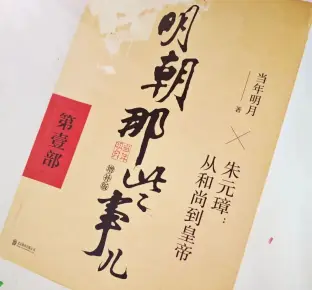 明朝那些事儿
增补版
第壹部
当年明月
著
朱元璋：
从和尚到皇帝